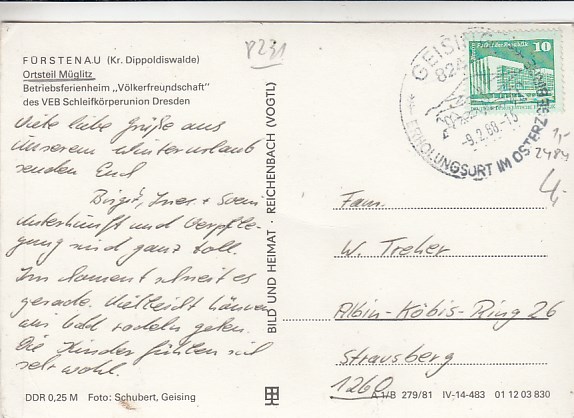 FÜRSTENAU (Kr. Dippoldiswalde)
Ortsteil Müglitz
Betriebsferienheim „Völkerfreundschaft"
des VEB Schleifkörperunion Dresden
8231
Viele liebe Grüße aus
unserem Winterurlaub
senden Euch
Birgit, Ines + Sveni
Unterkunft und Verpfle-
gung sind ganz toll.
Im Moment schneit es
gerade. Vielleicht können
wir bald rodeln gehen.
Die Kinder fühlen sich
sehr wohl.
DDR 0,25 M Foto: Schubert, Geising
BILD UND HEIMAT · REICHENBACH (VOGTL)
GEISING
824
-9.2.88-15
ERHOLUNGSURT IM OSTERZGEB
10
1,-
2484
4,-
Fam.
W. Treher
Albin-Köbis-Ring 26
Strausberg
1260
A 1/B 279/81 IV-14-483 01 12 03 830